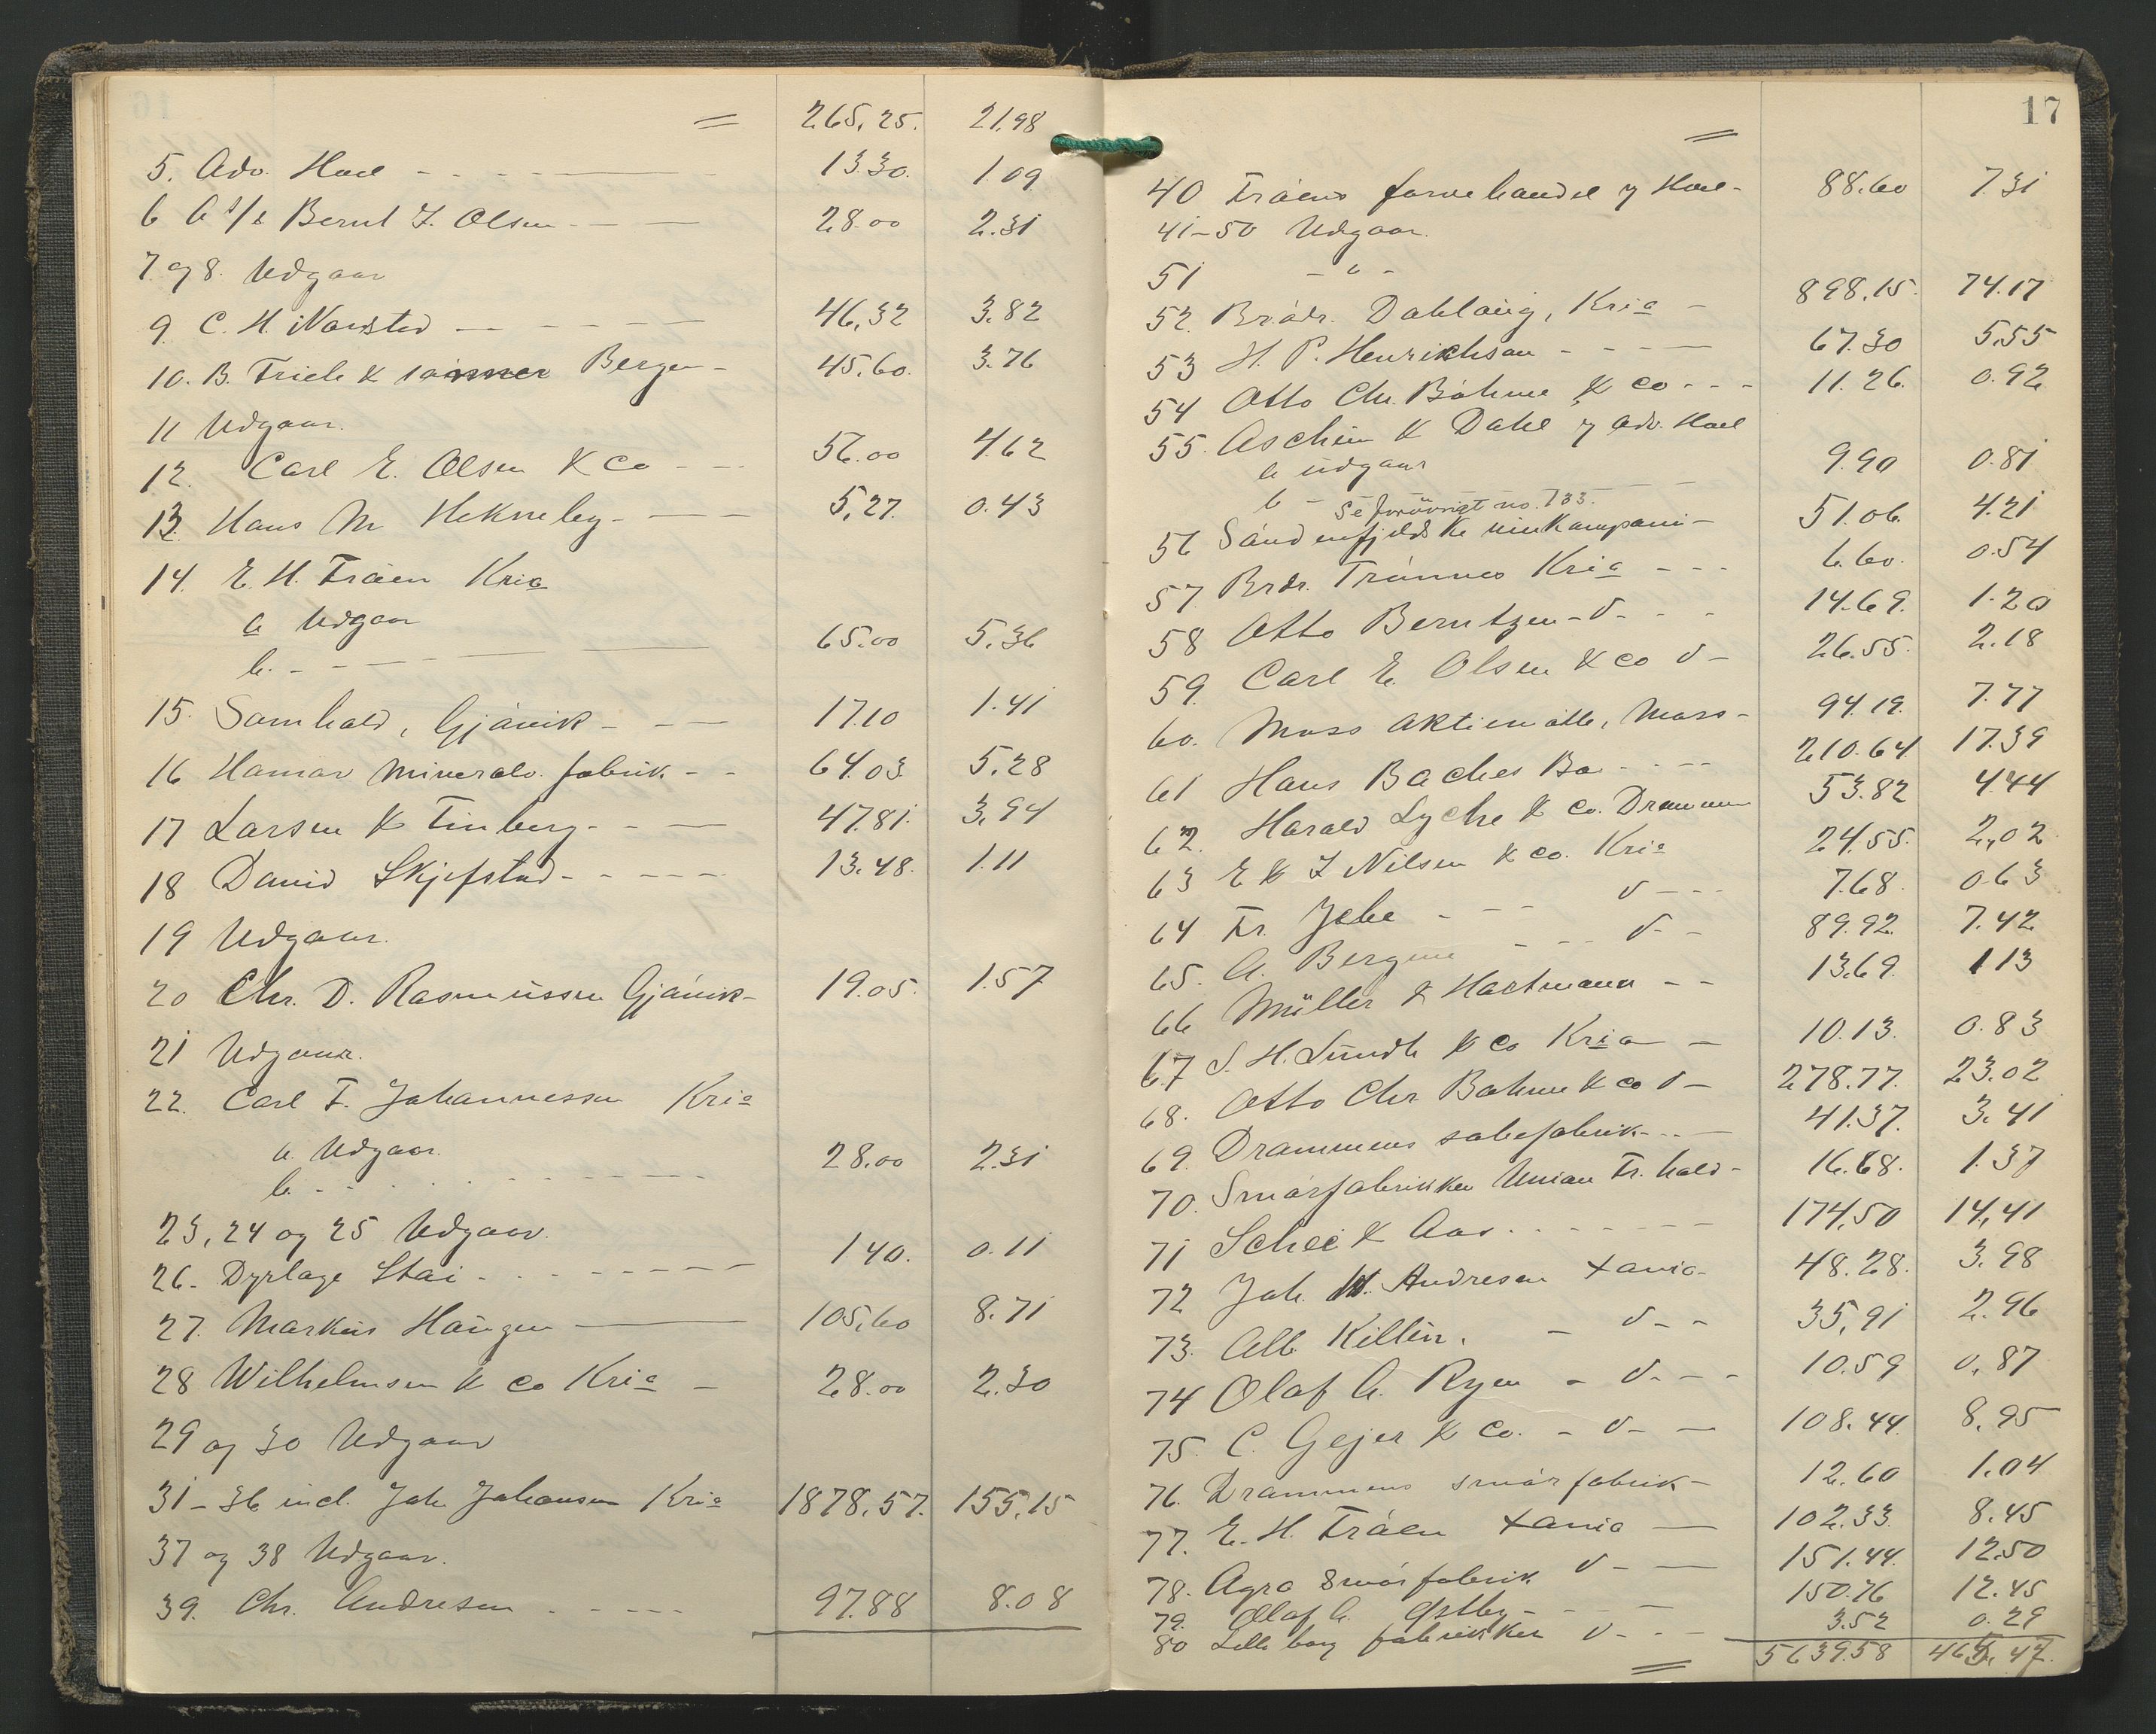 = 265.25. 21.98
5. Adv. Hoel - - - 13.30. 1.09
6 A s/s Bernt Z. Olsen - - 28.00 2.31
7 og 8. Udgaar
9 C. H. Narvsted - - - 46,32 3.82
10. B. Friele & sønner Bergen - 45.60. 3.76
11 Udgaar.
12. Carl E. Olsen & Co - - 56.00 4.62
13. Hans M Hekneby - - 5,27. 0.43
14. E. H. Fråen Kria
a Udgaar
b. - - - 65.00 5.36
15. Samhold, Gjøvik - - 17.10 1.41
16 Hamar Mineralv. fabrik - - 64.03. 5.28
17 Larsen & Finberg - - 47.81. 3.94
18 David Skjefstad - - - 13.48. 1.11
19 Udgaar.
20 Chr. D. Rasmussen Gjøvik - 19.05. 1.57
21 Udgaar.
22. Carl F. Johannessen Kria
a. Udgaar.
b. - - - 28.00 2.31
23, 24 og 25 Udgaar.
26 - Dyrlæge Stai - - - 1 40. 0.11
27. Markus Haugen — 105,60 8.71
28 Wilhelmsen & Co Kria - 28.00 2.30
29 og 30 Udgaar
31 - 36 incl. Joh Johansen Kria 1878.57. 155,15
37 og 38 Udgaar.
39. Chr. Andresen - - - 97.88 8.08
17
=
40 Fråens farvehandel v Hoel - 88.60 7.31
41-50 Udgaar.
51 - " -
52. Brødr. Dahlaug, Kria - 898.15. 74.17
53 H. P. Henrikhsen - - - 67.30 5.55
54 Otto Chr. Bøhme & Co - - - 11.26. 0.92
55. Aschim & Dahl v adv. Hoel
a udgaar
b - - - 9.90 0.81
Se forøvrigt no. 133.
56 Søndenfjeldske vinkompani - 51.06. 4.21
57. Brdr. Trønnes Kria - - - 6.60. 0.54
58 Otto Berntzen - d - - - 14.69. 1.20
59. Carl E. Olsen & Co d - 26.55. 2.18
60. Moss Aktiemølle, Moss - 94.19. 7.77
61 Hans Baches Bo - - - 210.64. 17.39
62. Harald Lyche & Co. Drammen 53.82 4.44
63 E & Z Nilsen & Co. Kria 24.55. 2,02
64 Fr. Jebe - - - d - - - 7.68. 0.63
65. A. Bergene - - - d - - 89.92. 7.42
66 Müller & Hartmann - - 13.69. 1 13
67 S. H. Lundh & Co Kria - 10.13. 0.83
68. Otto Chr Bøhme & Co d - 278.77. 23.02
69. Drammens sæbefabrik - - - 41.37. 3.41
70. Smørfabrikken Union Fr.hald - 16.68. 1.37
71 Schee & Aas - - - 174.50 14,41
72 Joh. H. Andresen Xania - 48.28. 3.98
73. Alb. Killin. - d - - 35,91 2.96
74 Olaf A. Ryen - d - - - 10.59 0.87
75. C. Gejer & Co. - d - - 108.44. 8.95
76. Drammens smørfabrik - 12.60 1.04
77. E. H. Fråen Xania - 102.33. 8.45
78. Agra smørfabrik d - - 151.44. 12.50
79. Olaf A. Østby - - - 150.76 12.45
80 Lilleborg fabrikker d - - - 3.52 0.29
= 5639.58